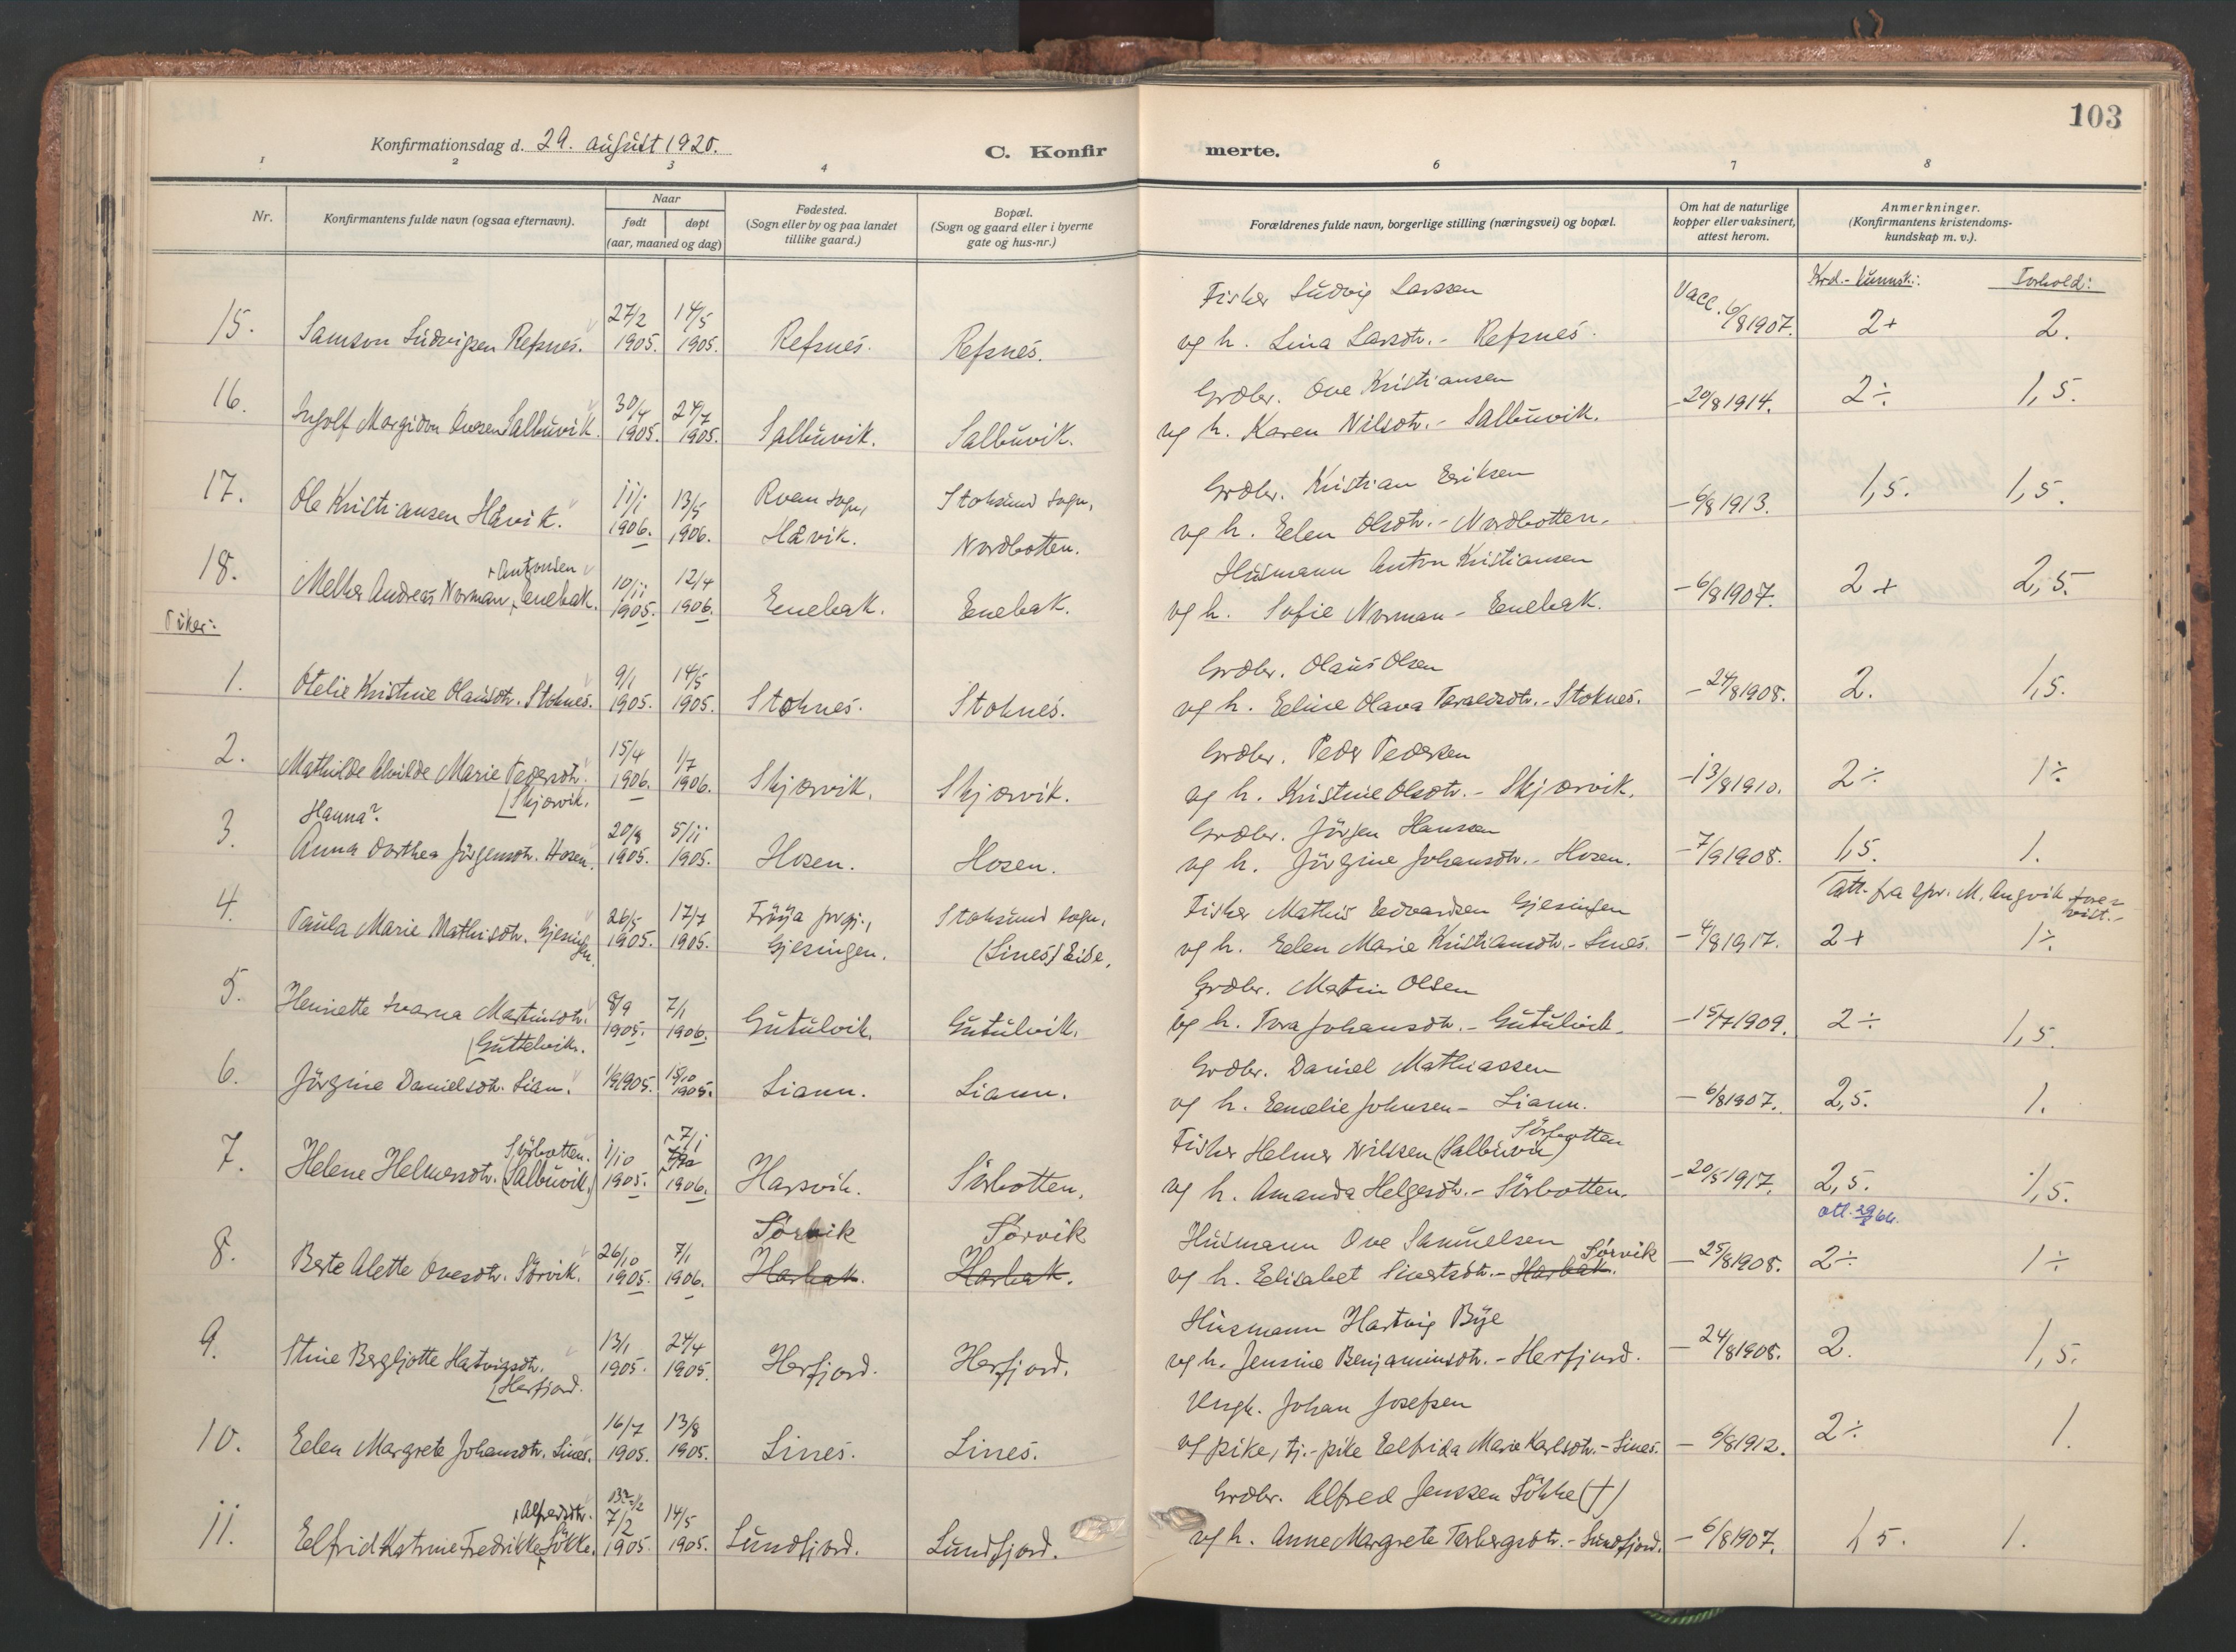 103
Konfirmationsdag d. 29. august 1920.
C. Konfir
merte.
1 2 3 4 6 7 8
Nr.
Konfirmantens fulde navn (ogsaa efternavn).
Naar
født døpt
(aar, maaned og dag)
Fødested.
(Sogn eller by og paa landet
tillike gaard.)
Bopæl.
(Sogn og gaard eller i byerne
gate og hus-nr.)
Forældrenes fulde navn, borgerlige stilling (næringsvei) og bopæl.
Om hat de naturlige
kopper eller vaksinert,
attest herom.
Anmerkninger.
(Konfirmantens kristendoms-
kundskap m. v.).
Krd.-kunnsk.: Forhold:
27/2 14/5 Fisker Ludvig Larssen Vacc.
15. Samson Ludvigsen Refsnes. 1905. 1905. Refsnes. Refsnes. og h. Lina Larsdtr. - Refsnes. 6/8 1907. 2+ 2.
30/4 24/7 Grdbr. Ove Kristiansen
16. Ingolf Margidon Ovesen Salbuvik. 1905. 1905. Salbuvik. Salbuvik. og h. Karen Nilsdtr. - Salbuvik. - 20/8 1914. 2÷ 1,5.
11/1 13/5 Roan sogn, Stoksund sogn, Grdbr. Kristian Eriksen
17. Ole Kristiansen Håvik. 1906. 1906. Håvik. Nordbotten. og h. Eelen Olsdtr. - Nordbotten. - 6/8 1913. 1,5. 1,5.
+Antonsen 10/11 12/4 Husmann Anton Kristiansen
18. Melker Andreas Norman, Eenebak. 1905. 1906. Eenebak. Eenebak. og h. Sofie Norman - Eenebak. - 6/8 1907. 2+ 2,5.
Piker:
9/1 14/5 Grdbr. Olaus Olsen
1. Otelie Kristine Olausdtr. Stoknes. 1905. 1905. Stoknes. Stoknes. og h. Eeline Olava Taraldsdtr. - Stoknes. - 24/8 1908. 2. 1,5.
15/4 1/7 Grdbr. Peder Pedersen
2. Mathilde Alvilde Marie Pedersdtr. 1906. 1906. Skjørvik. Skjørvik. og h. Kristine Olsdtr. - Skjørvik. - 13/8 1910. 2÷ 1÷
[Skjørvik.
Hanna? 20/8 5/11 Grdbr. Jörgen Hansen
3. Anna Dorthea Jörgensdtr. Hosen. 1905. 1905. Hosen. Hosen. og h. Jörgine Johansdtr. - Hosen. - 7/9 1908. 1,5. 1.
26/5 17/7 Fröya prgj., Stoksund sogn, Fisker Mathis Edvardsen Gjesingen Att. fra spr. M. Angvik forevist. -
4. Paula Marie Mathisdtr. Gjesingen. 1905. 1905. Gjesingen. (Lines) Eide. og h. Eelen Marie Kristiansdtr. - Lines. - 4/8 1917. 2+ 1÷
8/9 7/1 Grdbr. Martin Olsen
5. Henriette Svarna Martinsdtr. 1905. 1906. Gutulvik. Gutulvik. og h. Tora Johansdtr. - Gutulvik. - 15/7 1909. 2÷ 1,5.
[Guttelvik.
15/10 Grdbr. Daniel Mathiassen
6. Jörgine Danielsdtr. Lian. 1/9 1905. 1905. Liann. Liann. og h. Eemelie Johnsen - Liann. - 6/8 1907. 2,5. 1.
Sörbotten. 1/10 7/1 Fisker Helmer Nilssen (Salbuvik) Sörbotten
7. Helene Helmersdtr. (Salbuvik.) 1905. 1906. Harsvik. Sörbotten. og h. Amanda Helgesdtr. - Sörbotten. - 20/5 1917. 2,5. 1,5.
att. 29/8 66.
26/10 7/1 Sørvik Sørvik Husmann Ove Samuelsen Sørvik
8. Berte Alette Ovesdtr. Sørvik. 1905. 1906. Harbak. Harbak. og h. Eelisabet Sivertsdtr. - Harbak. - 25/8 1908. 2÷ 1÷
13/1 24/4 Husmann Hartvig Bye
9. Stine Bergljotte Hartvigsdtr. 1905. 1905. Herfjord. Herfjord. og h. Jensine Benjaminsdtr. - Herfjord. - 24/8 1908. 2. 1,5.
[Herfjord.
16/7 13/8 Ungk. Johan Josefsen
10. Eelen Margrete Johansdtr. Lines. 1905. 1905. Lines. Lines. og pike, tj.-pike Eelfrida Marie Karlsdtr. - Lines. - 6/8 1912. 2÷ 1.
+Alfredsdtr. 13?/2 7/2 14/5 Grdbr. Alfred Jenssen Sökke (†)
11. Eelfrid Katrine Fredrikke Sökke. 1905. 1905. Sundfjord. Sundfjord. og h. Anne Margrete Torbergsdtr. - Sundfjord. - 6/8 1907. 1,5. 1.